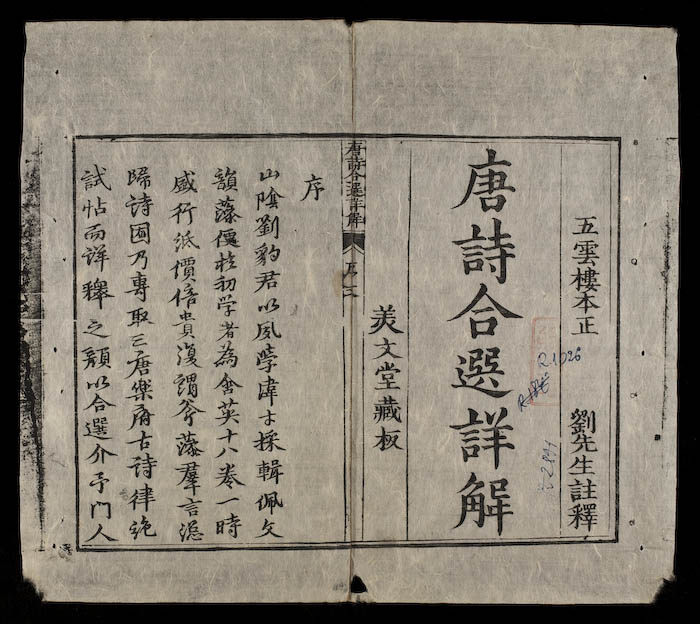 五雲樓本正 劉先生註釋
唐詩合選詳解
美文堂藏板
R.1026
唐詩合選詳解
序
山陰劉豹君以夙學偉才採輯佩文
韻藻便扵初学者為含英十八卷一時
盛行紙價倍貴復謂斧藻羣言總
歸詩囿乃專取三唐樂府古诗律絶
試帖而詳釋之顏以合選介予門人